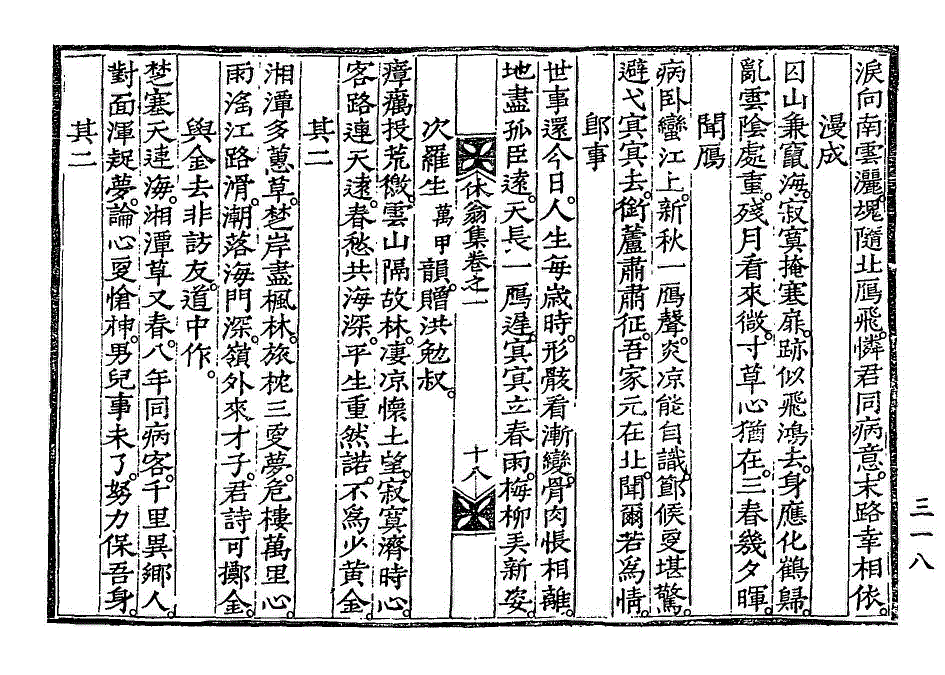 淚向南雲灑。塊隨北鴈飛。憐君同病意。末路幸相依。
漫成
囚山兼竄海。寂寞掩塞扉。跡似飛鴻去。身應化鶴歸。
亂雲陰處重。殘月看來微。寸草心猶在。三春幾夕暉。
聞鴈
病臥蠻江上。新秋一鴈聲。炎凉能自識。節候更堪驚。
避弋冥冥去。銜蘆肅肅征。吾家元在北。聞爾若爲情。
卽事
世事還今日。人生每歲時。形骸看漸變。骨肉悵相離。
地盡孤臣遠。天長一鴈遲。冥冥立春雨。梅柳弄新姿。
休翁集卷之一
十八
次羅生萬甲韻。贈洪勉叔。
瘴癘投荒徼。雲山隔故林。凄凉懷土望。寂寞濟時心。
客路連天遠。春愁共海深。平生重然諾。不爲少黃金。
其二
湘潭多蕙草。楚岸盡楓林。旅枕三更夢。危樓萬里心。
雨滛江路滑。潮落海門深。嶺外來才子。君詩可擲金。
與金去非訪友。道中作。
楚塞天連海。湘潭草又春。八年同病客。千里異鄕人。
對面渾疑夢。論心更愴神。男兒事未了。努力保吾身。
其二
三一八